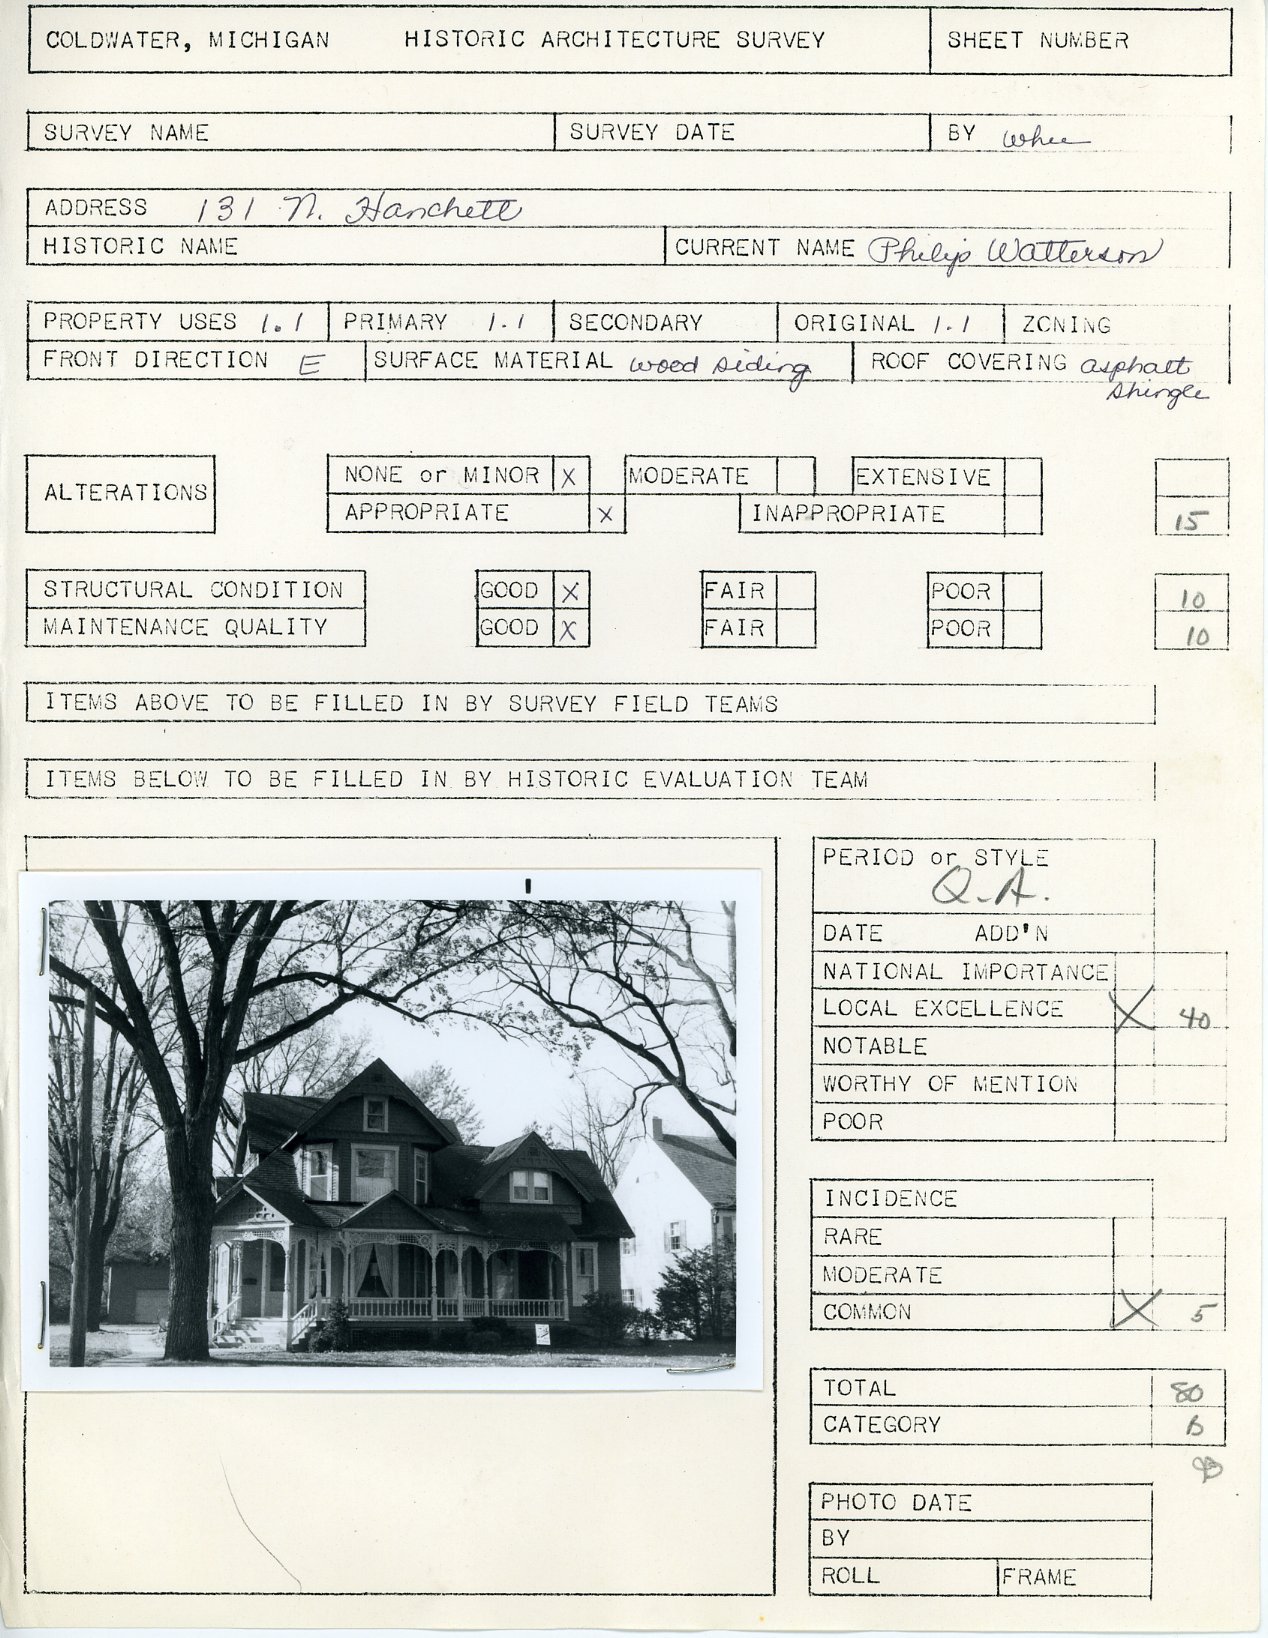 COLDWATER, MICHIGAN HISTORIC ARCHITECTURE SURVEY SHEET NUMBER
SURVEY NAME SURVEY DATE BY
ADDRESS 131 N. Hanchett
HISTORIC NAME CURRENT NAME Philip Watterson
PROPERTY USES 1.1 PRIMARY 1.1 SECONDARY ORIGINAL 1.1 ZONING
FRONT DIRECTION E SURFACE MATERIAL wood siding ROOF COVERING asphalt
shingle
ALTERATIONS
NONE or MINOR X MODERATE EXTENSIVE
APPROPRIATE X INAPPROPRIATE 15
STRUCTURAL CONDITION GOOD X FAIR POOR 10
MAINTENANCE QUALITY GOOD X FAIR POOR 10
ITEMS ABOVE TO BE FILLED IN BY SURVEY FIELD TEAMS
ITEMS BELOW TO BE FILLED IN BY HISTORIC EVALUATION TEAM
PERIOD or STYLE
Q.A.
DATE ADD'N
NATIONAL IMPORTANCE
LOCAL EXCELLENCE X 40
NOTABLE
WORTHY OF MENTION
POOR
INCIDENCE
RARE
MODERATE
COMMON X 5
TOTAL 80
CATEGORY B
PHOTO DATE
BY
ROLL FRAME